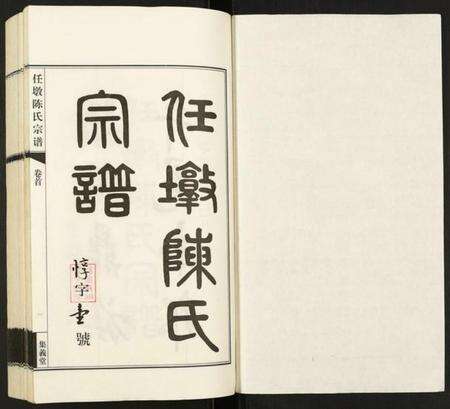 任墩陳氏
宗譜
惇字 號
任墩陈氏宗谱
卷首
集義堂